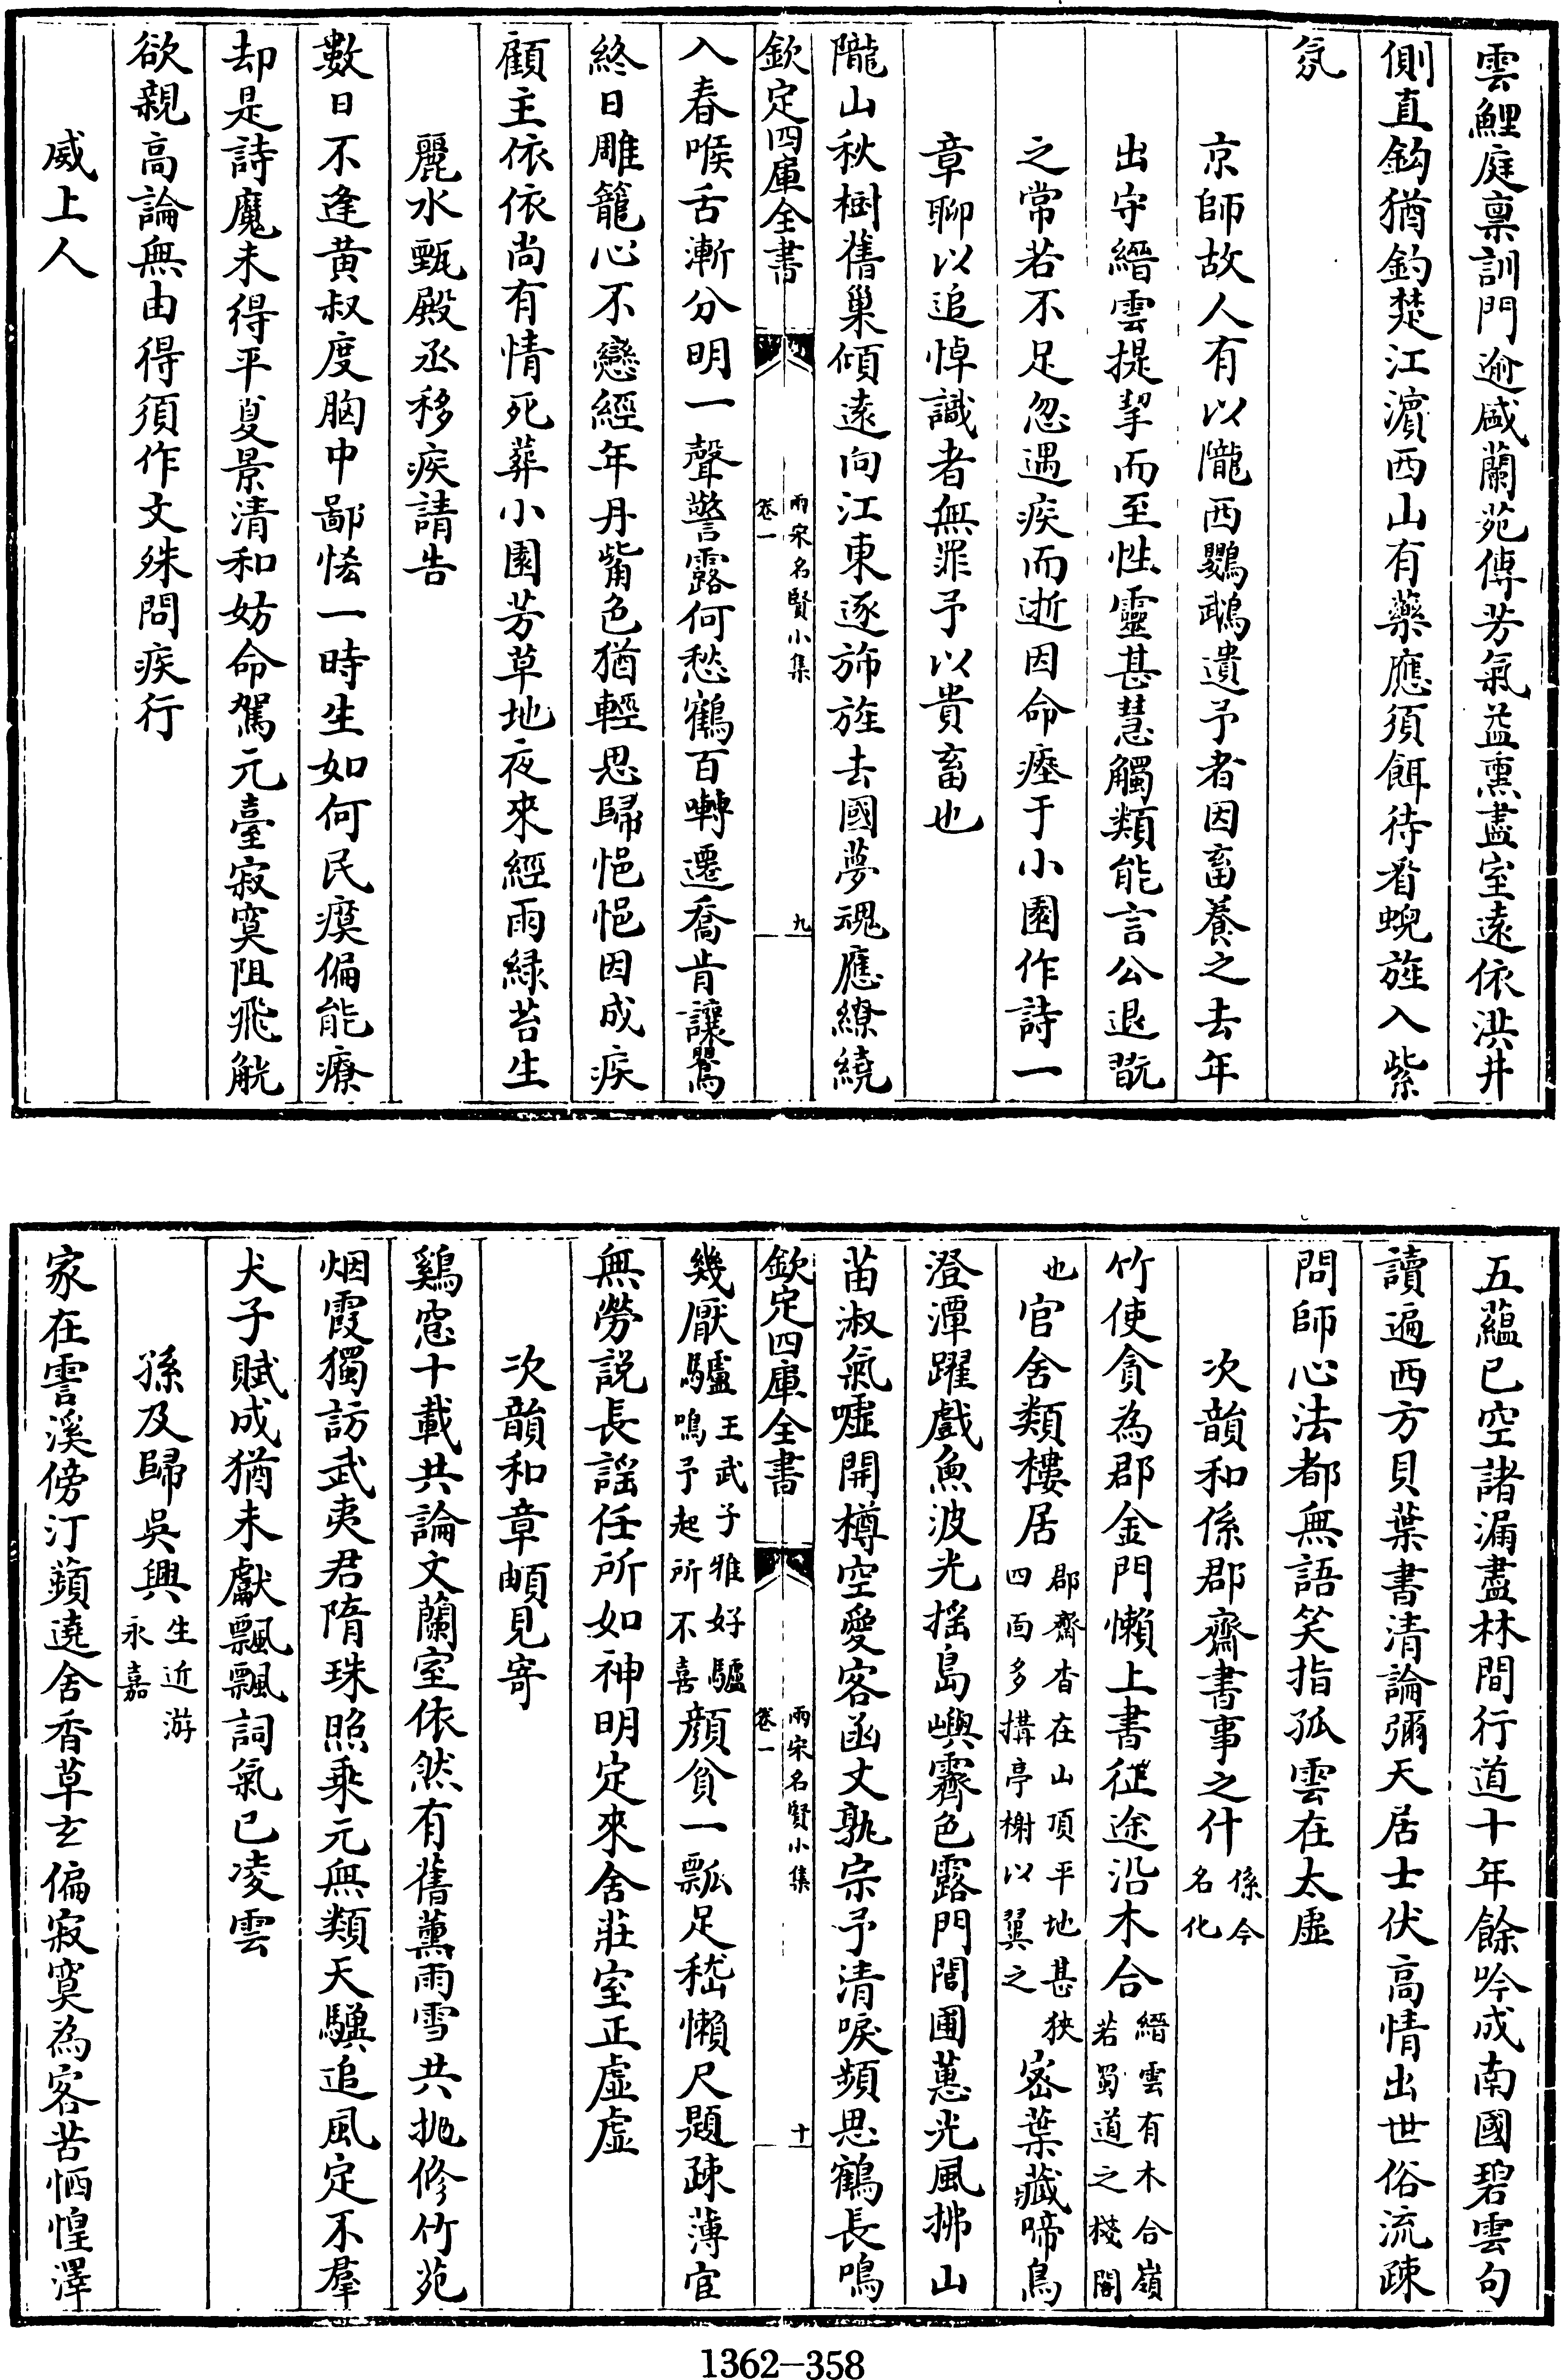 雲鯉庭稟訓門逾盛蘭苑傳芳氣益熏盡室遠依洪井
側直鈎猶釣楚江濵西山有藥應須餌待看蜺旌入紫
氛
京師故人有以隴西鸚鵡遺予者因畜養之去年
出守縉雲提挈而至性靈甚慧觸類能言公退翫
之常若不足忽遇疾而逝因命瘞于小園作詩一
章聊以追悼識者無罪予以貴畜也
隴山秋樹舊巢傾遠向江東逐斾旌去國夢魂應繚繞
欽定四庫全書 兩宋名賢小集 卷一 九
入春喉舌漸分明一聲警露何愁鶴百囀遷喬肯讓鸎
終日雕籠心不戀經年丹觜色猶輕思歸悒悒因成疾
顧主依依尚有情死葬小園芳草地夜來經雨緑苔生
麗水甄殿丞移疾請告
數日不逢黄叔度胸中鄙悋一時生如何民瘼偏能療
却是詩魔未得平夏景清和妨命駕元臺寂寞阻飛觥
欲親高論無由得須作文殊問疾行
威上人
五藴已空諸漏盡林間行道十年餘吟成南國碧雲句
讀遍西方貝葉書清論彌天居士伏高情出世俗流疎
問師心法都無語笑指孤雲在太虚
次韻和係郡齋書事之什 係今名化
竹使貪為郡金門懶上書征途沿木合 縉雲有木合嶺若蜀道之棧閣
也 官舍類樓居 郡齋杳在山頂平地甚狹四面多搆亭榭以翼之 密葉藏啼鳥
澄潭躍戲魚波光揺島嶼霽色露門閭圃蕙光風拂山
苗淑氣嘘開樽空愛客函丈孰宗予清唳頻思鶴長鳴
欽定四庫全書 兩宋名賢小集 卷一 十
幾厭驢 王武子雅好驢鳴予起所不喜 顔貧一瓢足嵇懶尺題疎薄宦
無勞説長謡任所如神明定來舍莊室正虚虚
次韻和章頔見寄
鷄窓十載共論文蘭室依然有舊薰雨雪共抛修竹苑
烟霞獨訪武夷君隋珠照乘元無類天驥追風定不羣
犬子賦成猶未獻飄飄詞氣已凌雲
孫及歸吳興 生近游永嘉
家在霅溪傍汀蘋遶舍香草玄偏寂寞為客苦恓惶澤
1362—358